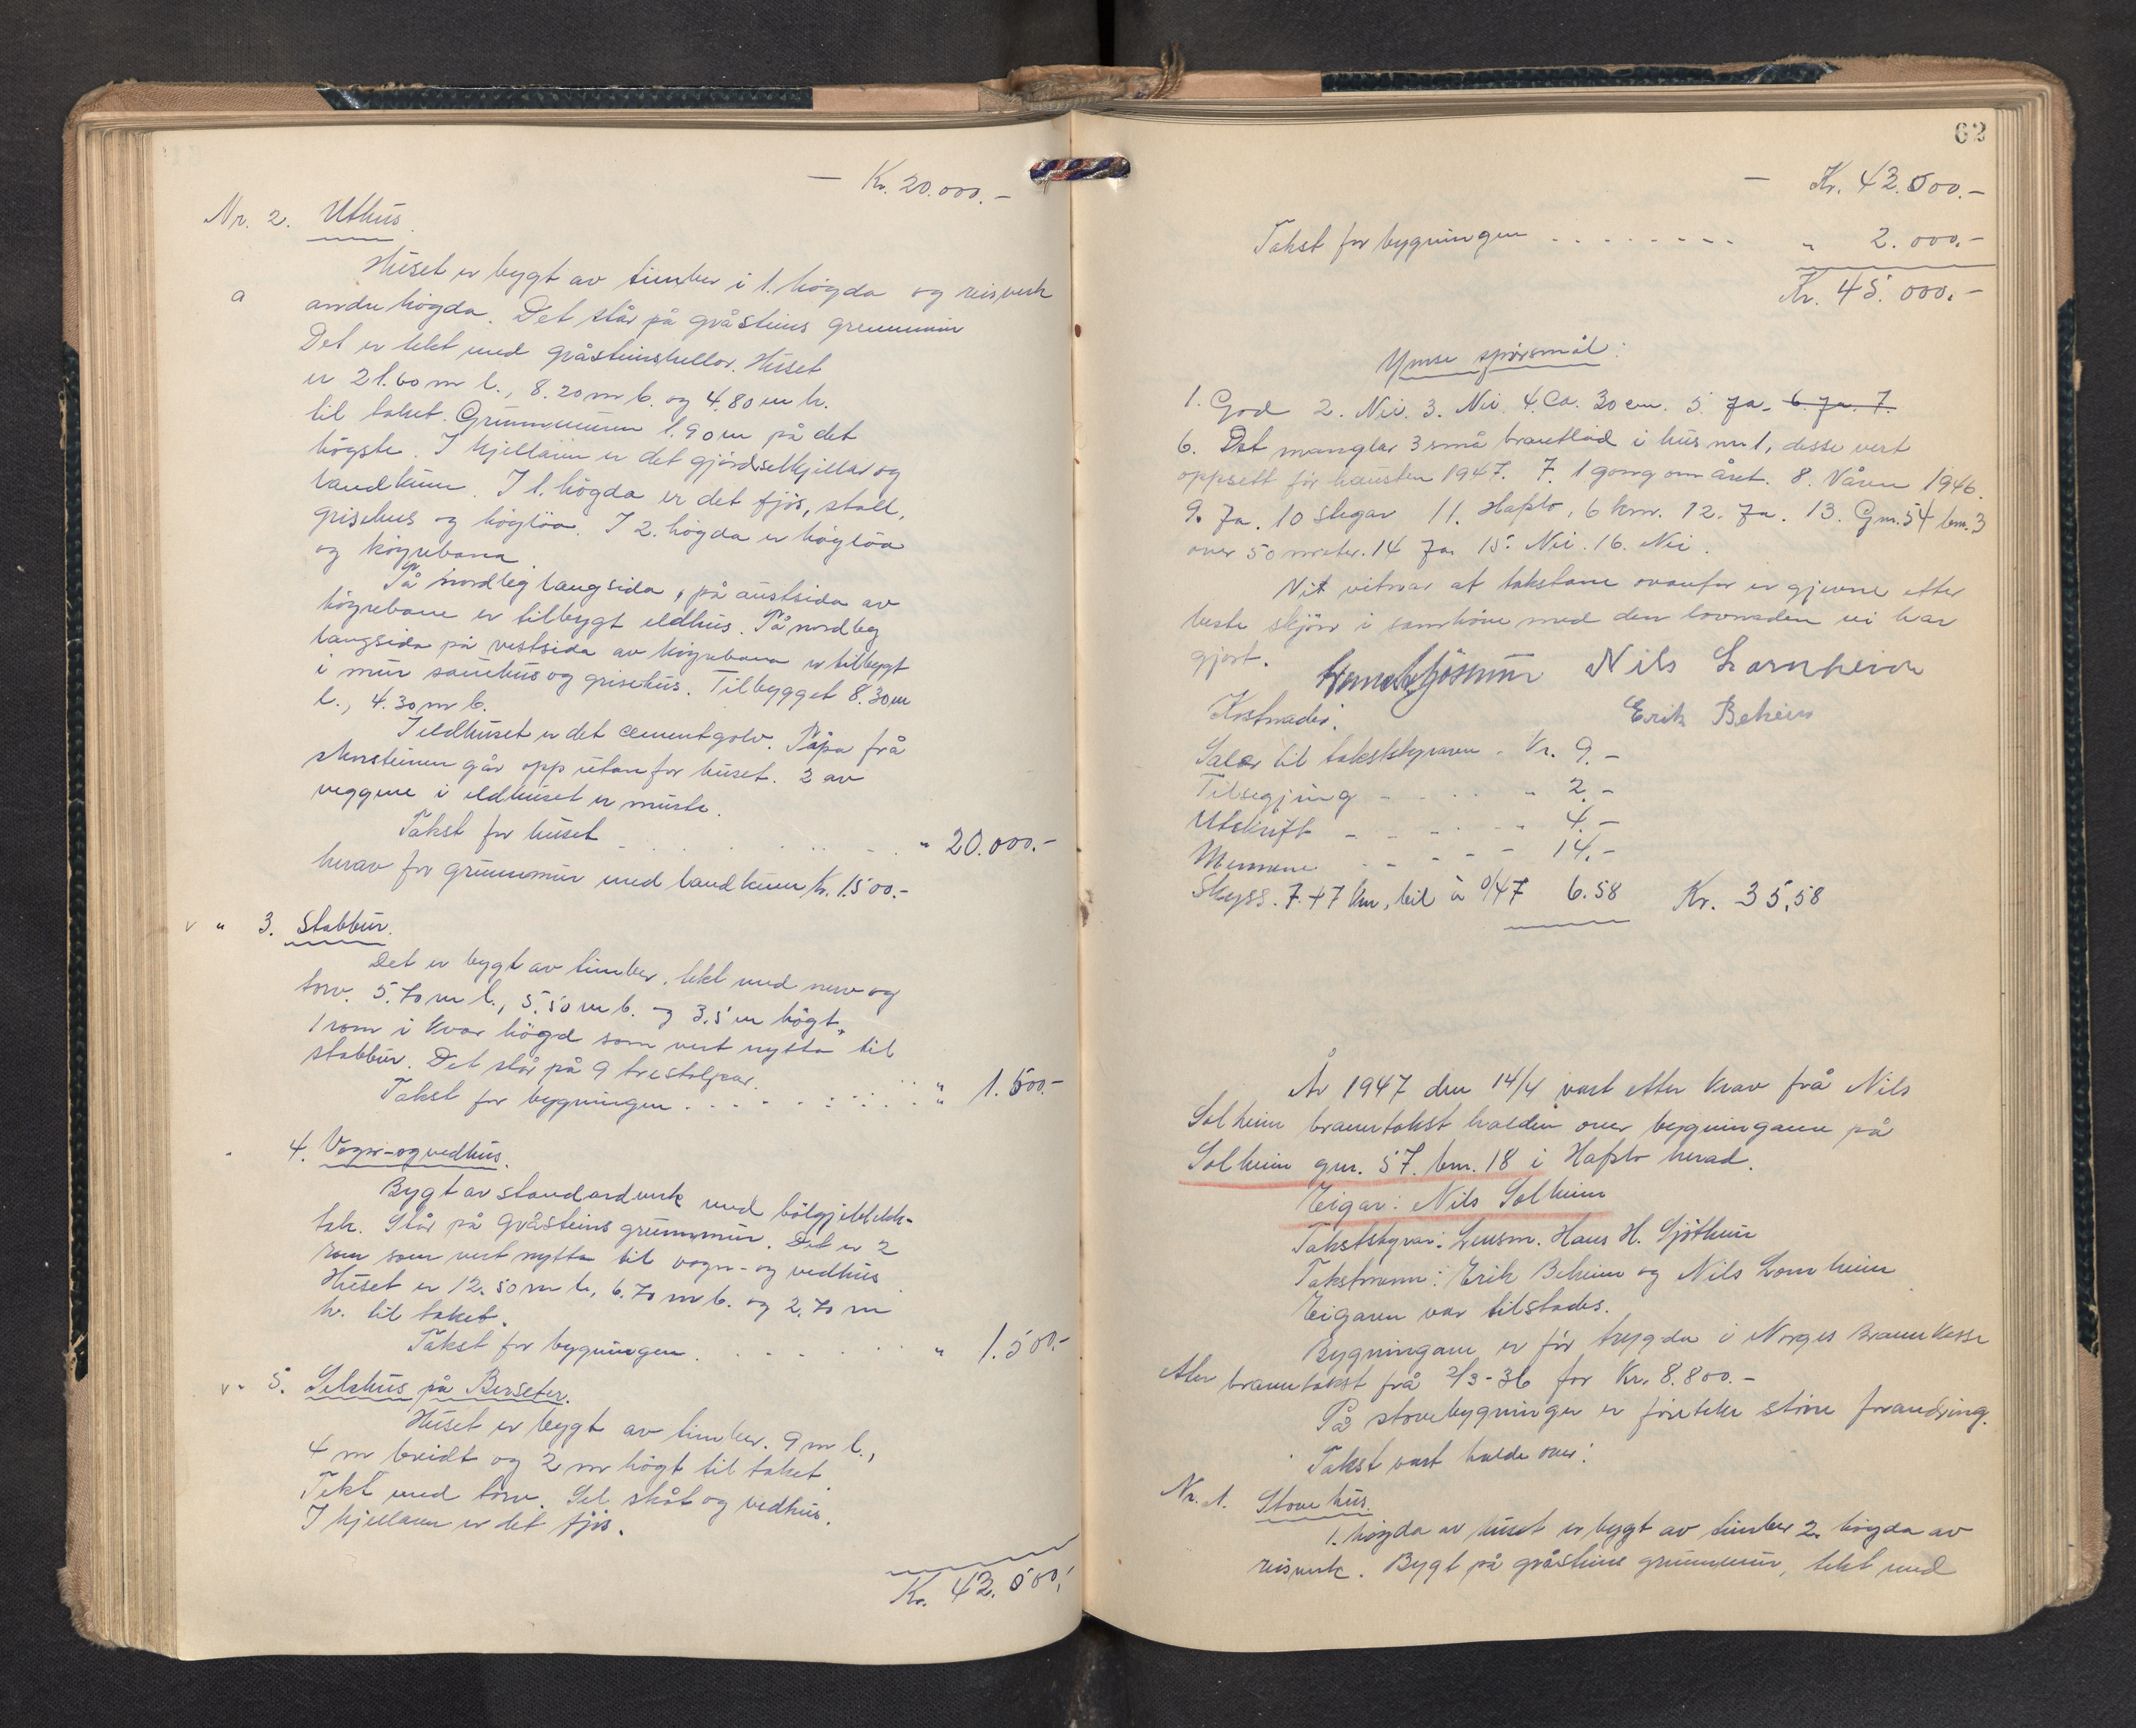 — Kr. 20.000.—
Nr. 2. Uthus.
Huset er bygt av timber i 1. högda og reisverk
a andre högda. Det står på gråsteins grunnmur
Det er tekt med gråsteinshellor. Huset
er 21.60 m l., 8.20 m b. og 4.80 m h.
til taket. Grunnmuren 1.90 m på det
högste. I kjellaren er det gjördselkjellar og
landkum. I 1. högda er det fjös, stall,
grisehus og höylöa. I 2. högda er höylöa
og köyrebana.
På nordleg langsida, på austsida av
köyrebane er tilbygt eldhus. På nordleg
langsida på vestsida av köyrebana er tilbygt
i mur sauehus og grisehus. Tilbygget 8.30 m
l., 4.30 m b.
I eldhuset er det cementgolv. Pipa frå
skorsteinen går opp utanfor huset. 3 av
veggene i eldhuset er murte.
Takst for huset . . . . . " 20.000.—
herav for grunnmur med landkum Kr. 1500.—
v " 3. Stabbur.
Det er bygt av timber, tekt med never og
torv. 5.70 m l., 5.50 m b. og 3.5 m högt.
1 rom i kvar högd som vert nytta til
stabbur. Det står på 9 trestolpar.
Takst for bygningen . . . . . . . " 1.500.—
4. Vogn- og vedhus.
Bygt av standardverk med bölgjeblekk-
tak. Står på gråsteins grunnmur. Det er 2
rom som vert nytta til vogn- og vedhus
Huset er 12.50 m l., 6.70 m b. og 2.70 m
h. til taket.
Takst for bygningen . . . . . . " 1.500.—
v " 5. Selshus på Berseter.
Huset er bygt av timber. 9 m l.,
4 m breidt og 2 m högt til taket.
Tekt med torv. Sel skåt og vedhus.
I kjellaren er det fjös.
Kr. 43.000.—
62
— Kr. 43.000.—
Takst for bygningen . . . . . . . . " 2.000.—
Kr. 45.000.—
Ymse spörsmål:
1. God 2. Nei. 3. Nei. 4. Ca. 30 cm. 5. Ja. 6. Ja. 7.
6. Det manglar 3 små brannlod i hus nr. 1, desse vert
oppsett för hausten 1947. 7. 1 gong om året. 8. Våren 1946.
9. Ja. 10 Stigar 11. Hafslo, 6 km. 12. Ja. 13. Gnr. 54 bnr. 3
over 50 meter. 14 Ja. 15. Nei. 16. Nei.
Vit vitnar at takstane ovanfor er gjevne etter
beste skjön i samhöve med den lovnaden vi har
gjort. Nils Lomheim
Kostnader: Erik Beheim
Salær til takststyraren . Kr. 9.—
Tilsegjing — . . . " 2.—
Utskrift — . . . . " 4.—
Mennene . . . . . 14.—
Skyss. 7 + 7 km, bil à 0/47 6.58 Kr. 35,58
År 1947 den 14/4 vart etter krav frå Nils
Solheim branntakst halden over bygningane på
Solheim gnr. 57. bnr. 18 i Hafslo herad.
Eigar: Nils Solheim
Takststyrar: Lensm. Hans H. Gjöthun
Takstmenn: Erik Beheim og Nils Lomheim
Eigaren var tilstades.
Bygningane er för trygda i Norges Brannkasse
etter branntakst frå 2/3-36 for Kr. 8.800.—
På stovebygningen er företeke större forandring.
Takst vart halde over:
Nr. 1. Stovehus.
1. högda av huset er bygt av timber 2. högda av
reisverk. Bygt på gråsteins grunnmur, tekt med